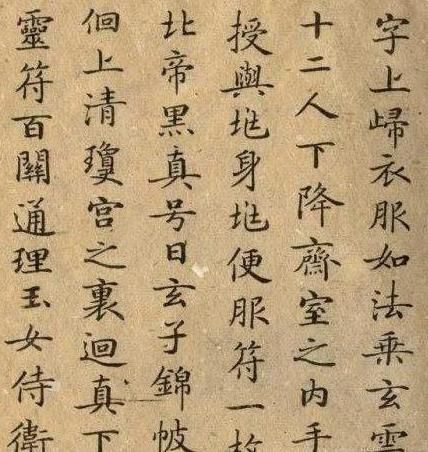 字上㱕衣服如法乘玄雲
十二人下降齋室之内手
授與兆身兆便服符一枚
北帝黑真号曰玄子錦帔
佪上清瓊宫之裏迴真下
靈符百關通理玉女侍衛